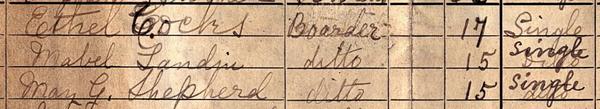 Ethel Cocks Boarder 17 Single
Mabel Landin ditto 15 Single
May G. Shepherd ditto 15 Single